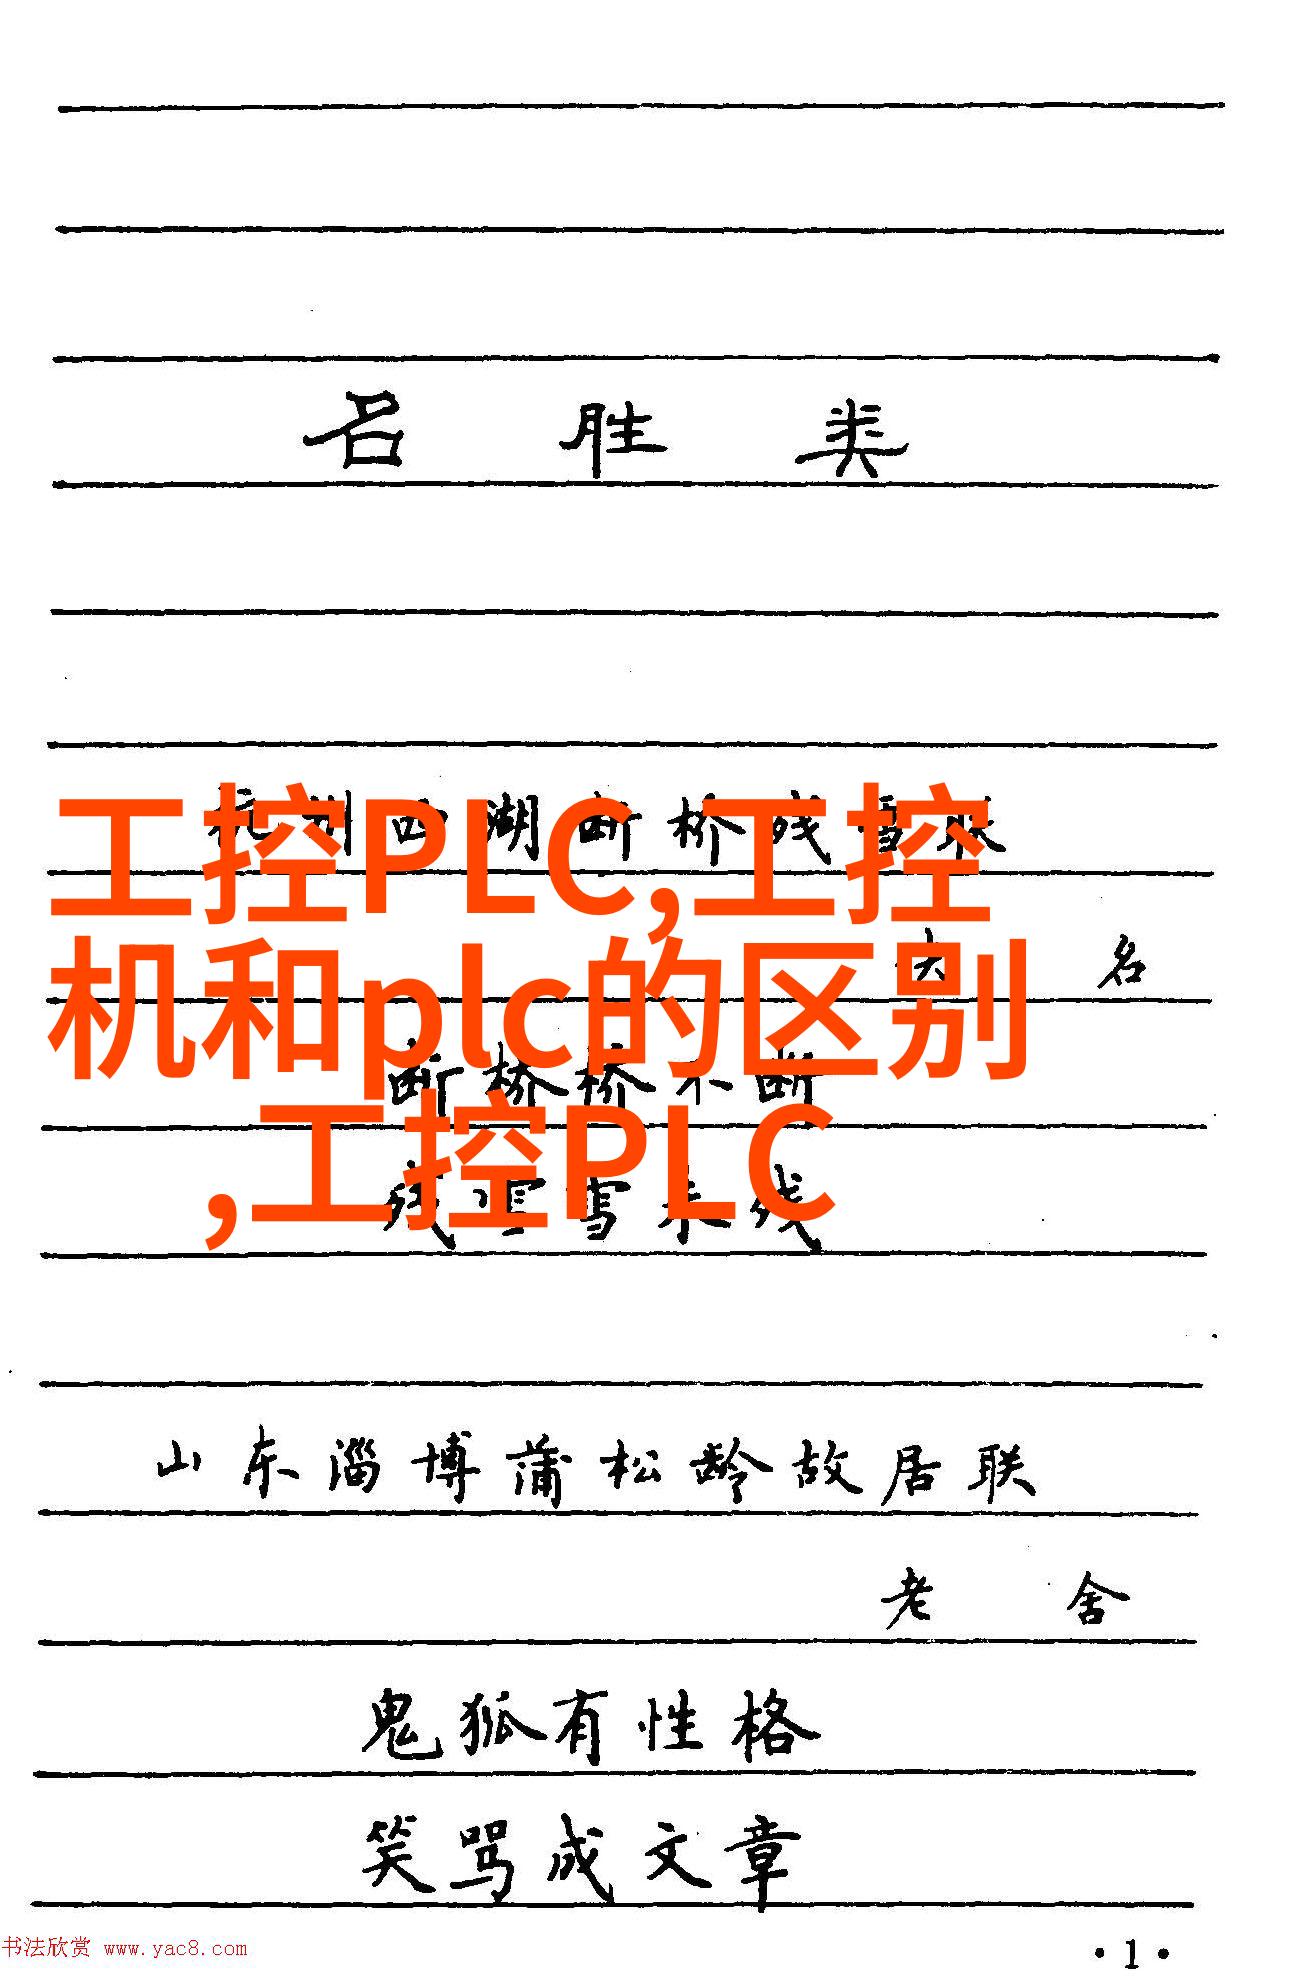 名胜类
杭州西湖断桥残雪联
工控PLC,工控
大名
机和plc的区别
断桥桥不断
,工控PLC
残雪雪未残
山东淄博蒲松龄故居联
老舍
鬼狐有性格
笑骂成文章
书法欣赏 www.yac8.com
·1·